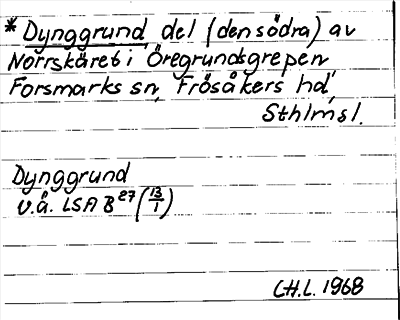 *Dynggrund, del (den södra) av
Norrskäret i Öregrundsgrepen
Forsmarks sn, Frösåkers hd,
Sthlms l.
Dynggrund
U.å. LSA B 27 (13/1)
C.H.L. 1968